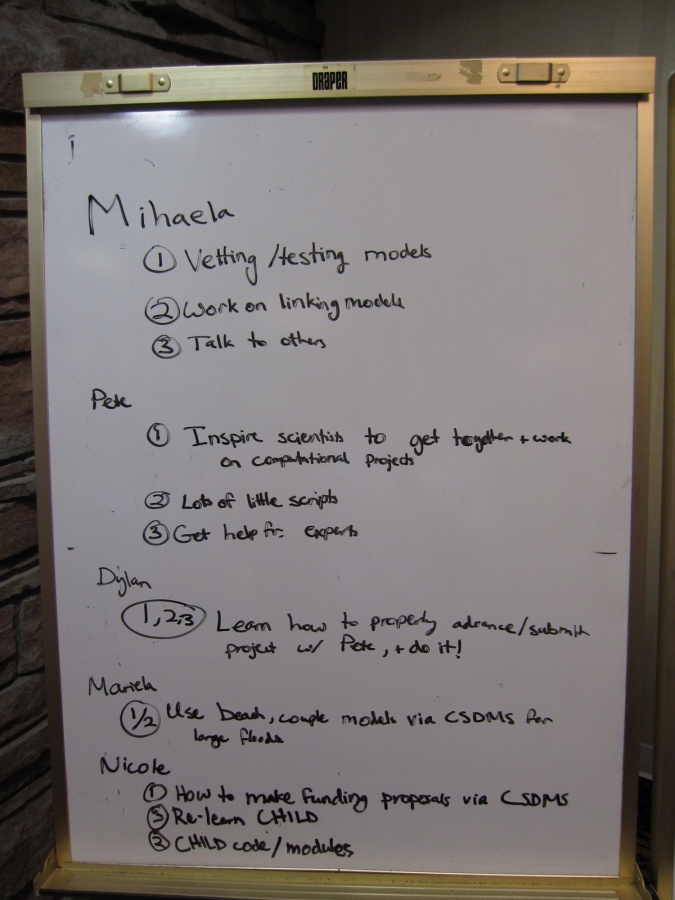 DRAPER
Mihaela
① Vetting/testing models
② Work on linking models
③ Talk to others
Pete
① Inspire scientists to get together + work
on computational projects
② Lots of little scripts
③ Get help fr. experts
Dylan
1,2,3 Learn how to properly advance/submit
project w/ Pete, + do it!
Mariela
1/2 Use beach, couple models via CSDMS for
large floods
Nicole
① How to make funding proposals via CSDMS
③ Re-learn CHILD
② CHILD code/modules